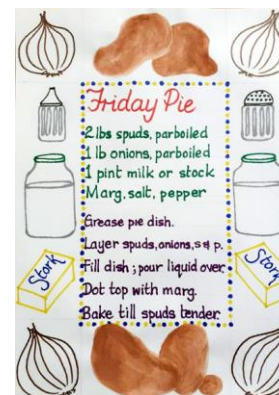 Friday Pie
2 lbs spuds, parboiled
1 lb onions, parboiled
1 pint milk or stock
Marg, salt, pepper
Grease pie dish.
Layer spuds, onions, s & p.
Fill dish; pour liquid over.
Dot top with marg.
Bake till spuds tender.
Stork
Stork